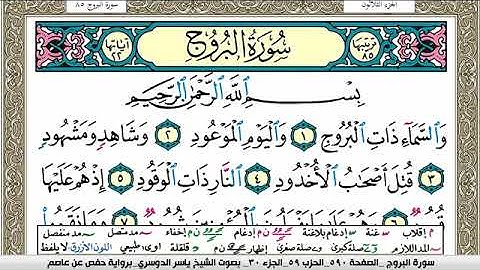 سورة البروج ٨٥
الجزء الثلاثون
ترتيبها ٨٥
سُورَةُ الْبُرُوجِ
آياتها ٢٢
بِسْمِ اللَّهِ الرَّحْمَٰنِ الرَّحِيمِ
وَالسَّمَاءِ ذَاتِ الْبُرُوجِ ١ وَالْيَوْمِ الْمَوْعُودِ ٢ وَشَاهِدٍ وَمَشْهُودٍ
٣ قُتِلَ أَصْحَابُ الْأُخْدُودِ ٤ النَّارِ ذَاتِ الْوَقُودِ ٥ إِذْ هُمْ عَلَيْهَا
م إقلاب غنة إدغام بلاغنة ن م إدغام ن إخفاء مد متصل مد منفصل
المد اللازم صلة كبرى وصلة صغرى إظهار ن م قلقلة طبيعي اللون الأزرق لا يلفظ
سورة البروج _الصفحة ٥٩٠_الحزب ٥٩_الجزء ٣٠_ بصوت الشيخ ياسر الدوسري_برواية حفص عن عاصم